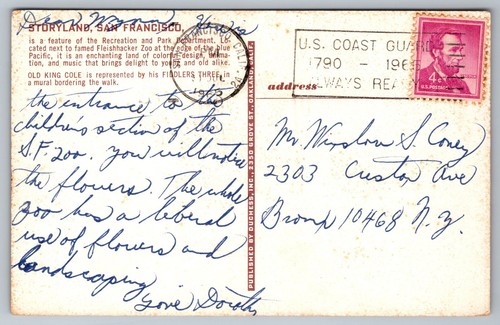 Dear
STORYLAND, SAN FRANCISCO
is a feature of the Recreation and Park Department. Lo-
cated next to famed Fleishhacker Zoo at the edge of the blue
Pacific, it is an enchanting land of colorful design, anima-
tion, and music that brings delight to young and old alike.
OLD KING COLE is represented by his FIDDLERS THREE in
a mural bordering the walk.
the entrance to the
children's section of the
S.F. zoo. you will notice
the flowers. The whole
zoo has a liberal
use of flowers and
landscaping
Love Dorothy
PUBLISHED BY DUCHESS, INC., 3350 GROVE ST., OAKLAND
SAN FRANCISCO, CALIF.
U.S. COAST GUARD
1790 - 1965
ALWAYS READY
4¢
U.S. POSTAGE
address
Mr. Winslow S. Coney
2303 Creston Ave
Bronx 10468 N.Y.